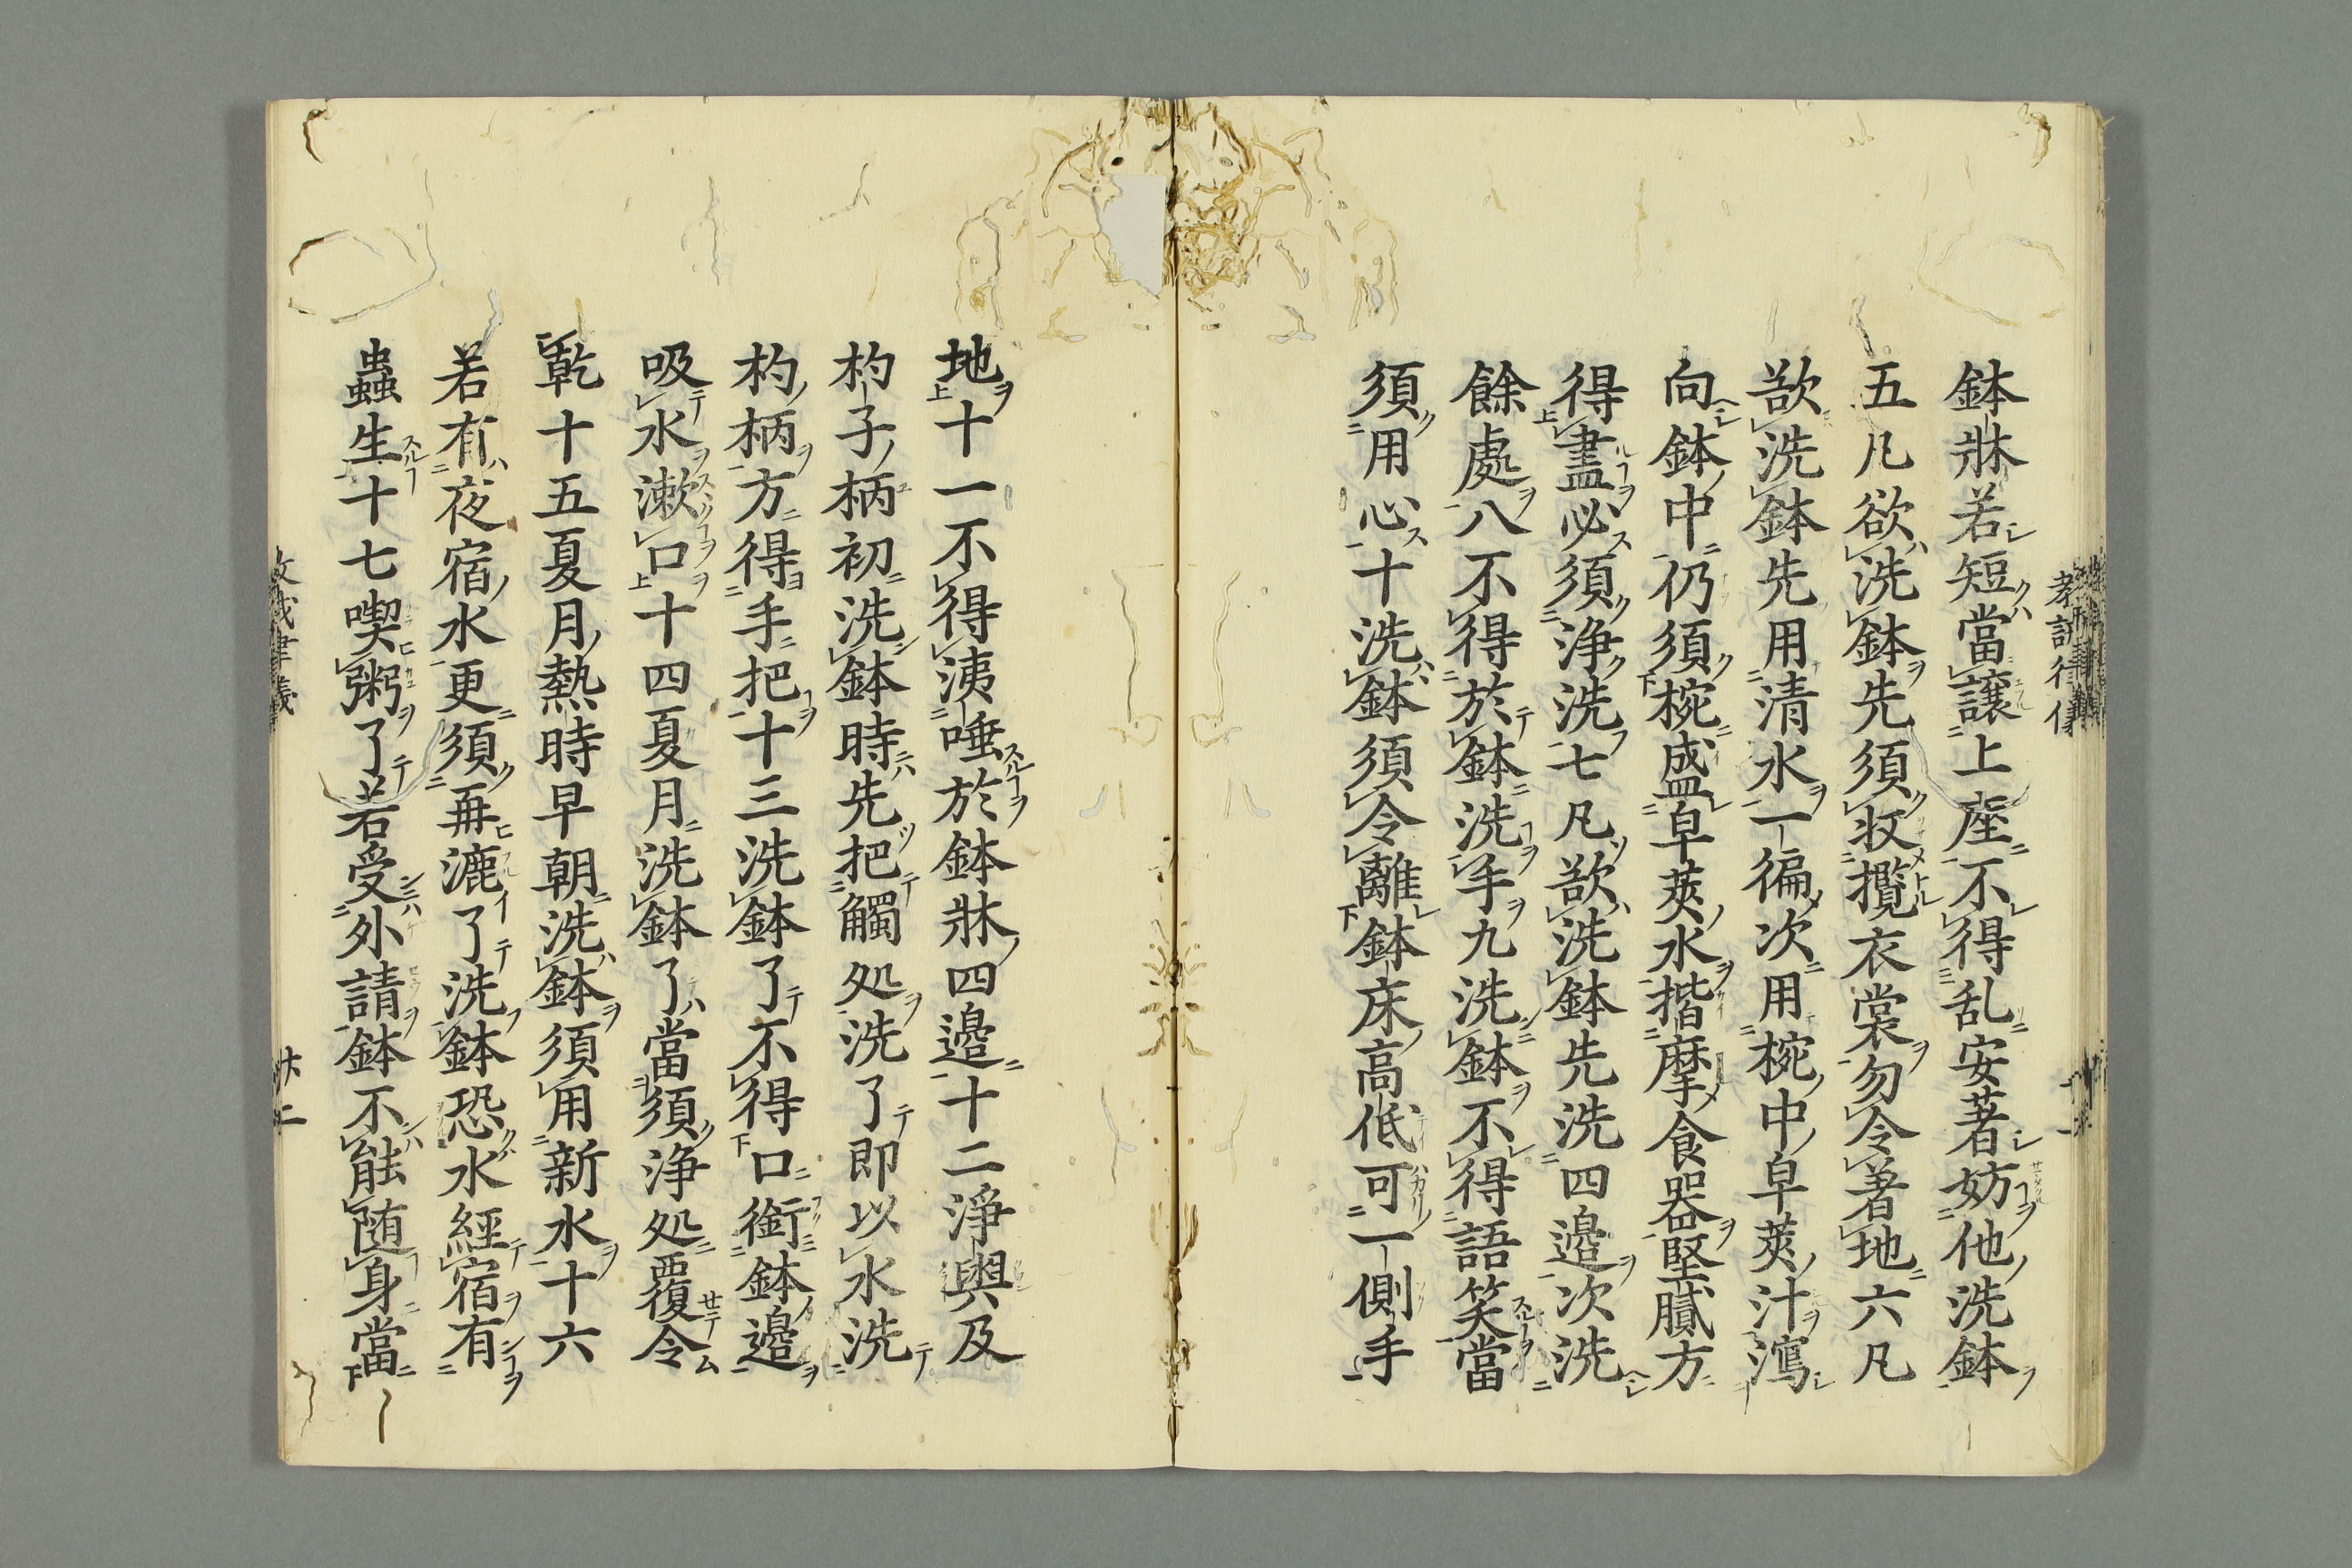 鉢牀若短當讓上座不得乱安著妨他洗鉢
五凡欲洗鉢先須收攬衣裳勿令著地六凡
欲洗鉢先用清水一徧次用椀中皁莢汁瀉
向鉢中仍須椀盛皁莢水揩摩食器堅膩方
得盡必須淨洗七凡欲洗鉢先洗四邉次洗
餘處八不得於鉢洗手九洗鉢不得語笑當
須用心十洗鉢須令離鉢床高低可一側手
地十一不得洟唾於鉢牀四邉十二淨與及
杓子柄初洗鉢時先把觸処洗了即以水洗
杓柄方得手把十三洗鉢了不得口銜鉢邉
吸水漱口十四夏月洗鉢了當須淨処覆令
乾十五夏月熱時早朝洗鉢須用新水十六
若有夜宿水更須再漉了洗鉢恐水經宿有
蟲生十七喫粥了若受外請鉢不能随身當
教誡律儀